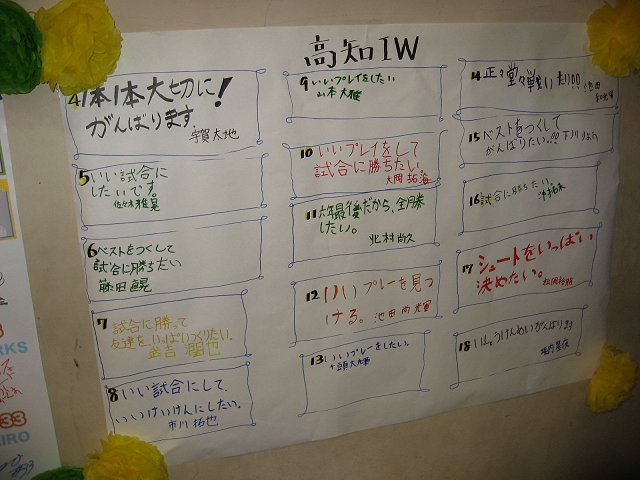 高知IW
4 1本1本大切に!
がんばります
宇賀太地
5 いい試合に
したいです。
佐々木雅晃
6 ベストをつくして
試合に勝ちたい
藤田直晃
7 試合に勝って
友達をいっぱいつくりたい。
8 いい試合にして、
いいけいけんにしたい。
市川拓也
9 いいプレイをしたい
山本大雅
10 いいプレイをして
試合に勝ちたい。
大岡拓海
11 六年最後だから、全力勝
したい。
北村尚久
12 いいプレーを見つ
ける。池田尚輝
13 いいプレーをしたい。
14 正々堂々戦い
池田
15 ベストをつくして
がんばりたい!!
16 試合に勝ちたい。
17 シュートをいっぱい
決めたい。
18 いっしょうけんめいがんばります
RKS
33
IRO